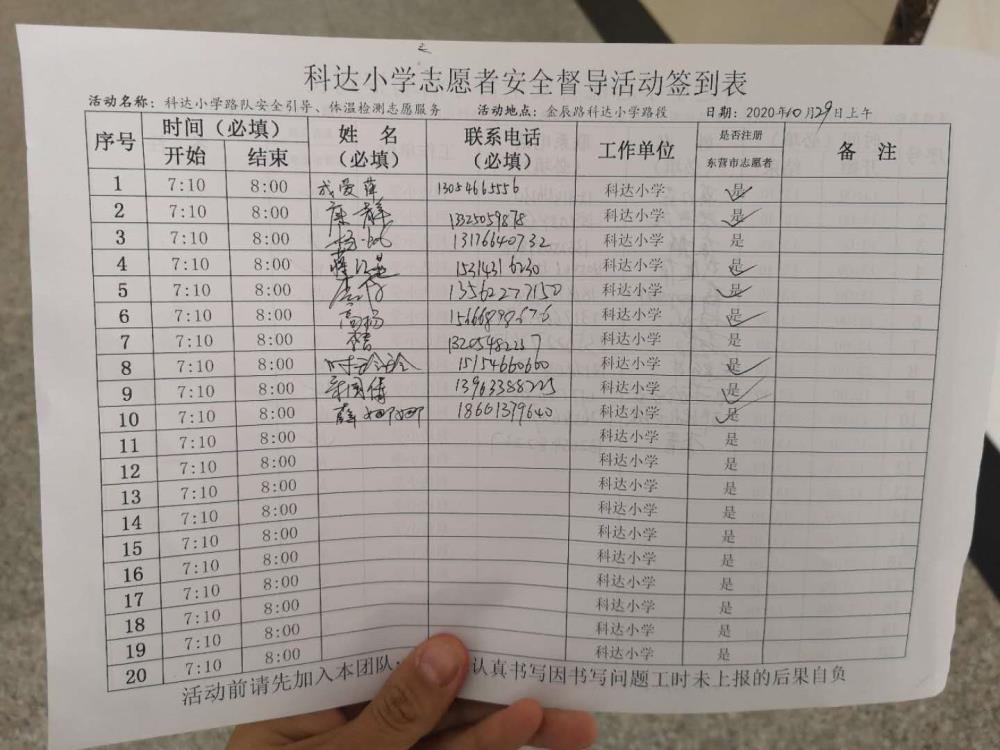 科达小学志愿者安全督导活动签到表
活动名称：科达小学路队安全引导、体温检测志愿服务 活动地点：金辰路科达小学路段 日期：2020年10月29日上午
序号 时间（必填） 姓 名（必填） 联系电话（必填） 工作单位 是否注册 备 注
开始 结束 东营市志愿者
1 7:10 8:00 13054665556 科达小学 是
2 7:10 8:00 康群 13325059878 科达小学 是
3 7:10 8:00 13176640732 科达小学 是
4 7:10 8:00 15314316230 科达小学 是
5 7:10 8:00 13562277150 科达小学 是
6 7:10 8:00 高杨 科达小学 是
7 7:10 8:00 科达小学 是
8 7:10 8:00 时玲玲 15154660660 科达小学 是
9 7:10 8:00 13963388225 科达小学 是
10 7:10 8:00 薛娜娜 18661379640 科达小学 是
11 7:10 8:00 科达小学 是
12 7:10 8:00 科达小学 是
13 7:10 8:00 科达小学 是
14 7:10 8:00 科达小学 是
15 7:10 8:00 科达小学 是
16 7:10 8:00 科达小学 是
17 7:10 8:00 科达小学 是
18 7:10 8:00 科达小学 是
19 7:10 8:00 科达小学 是
20 7:10 8:00 科达小学 是
活动前请先加入本团队， 认真书写因书写问题工时未上报的后果自负